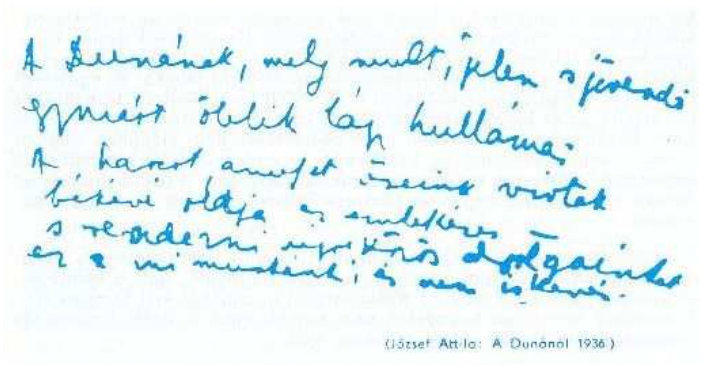 A Dunának, mely mult, jelen s jövendő
egymást ölelik lágy hullámai
A harcot amelyet őseink vívtak
békévé oldja az emlékezés
s rendezni végre közös dolgainkat
ez a mi munkánk; és nem is kevés.
(József Attila: A Dunánál 1936.)